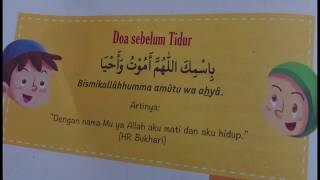 Doa sebelum Tidur
بِاسْمِكَ اللّٰهُمَّ أَمُوْتُ وَأَحْيَا
Bismikallâhhumma amûtu wa ahyâ.
Artinya:
"Dengan nama-Mu ya Allah aku mati dan aku hidup."
(HR Bukhari)